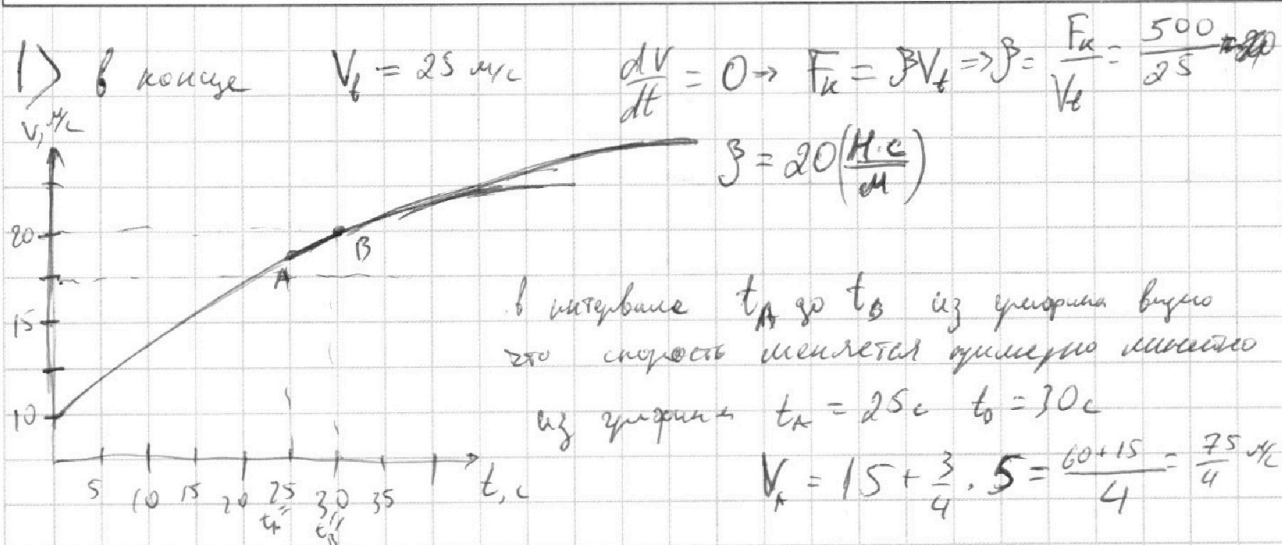 1) в конце V_t = 25 м/с dV/dt = 0 → F_к = βV_t => β = F_к/V_t = 500/25
β = 20 (Н·с/м)
V, м/с
20
15
10
A
B
5 10 15 20 25 30 35 t, с
t_A" t_B"
в интервале t_A до t_B из графика видно
что скорость меняется примерно линейно
из графика t_A = 25с t_B = 30с
V_A = 15 + 3/4 · 5 = (60+15)/4 = 75/4 м/с